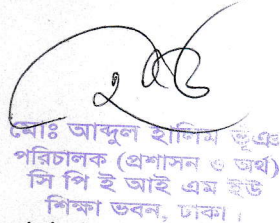 মোঃ আব্দুল হালিম ভূঞা
পরিচালক (প্রশাসন ও অর্থ)
সি পি ই আই এম ইউ
শিক্ষা ভবন, ঢাকা।